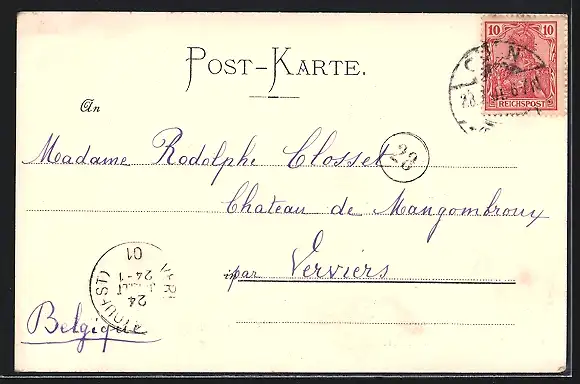 POST-KARTE.
10 10
REICHSPOST
An
Madame Rodolphe Closset
23
Chateau de Mangombroux
in par Verviers
24-1
24
01
Belgique